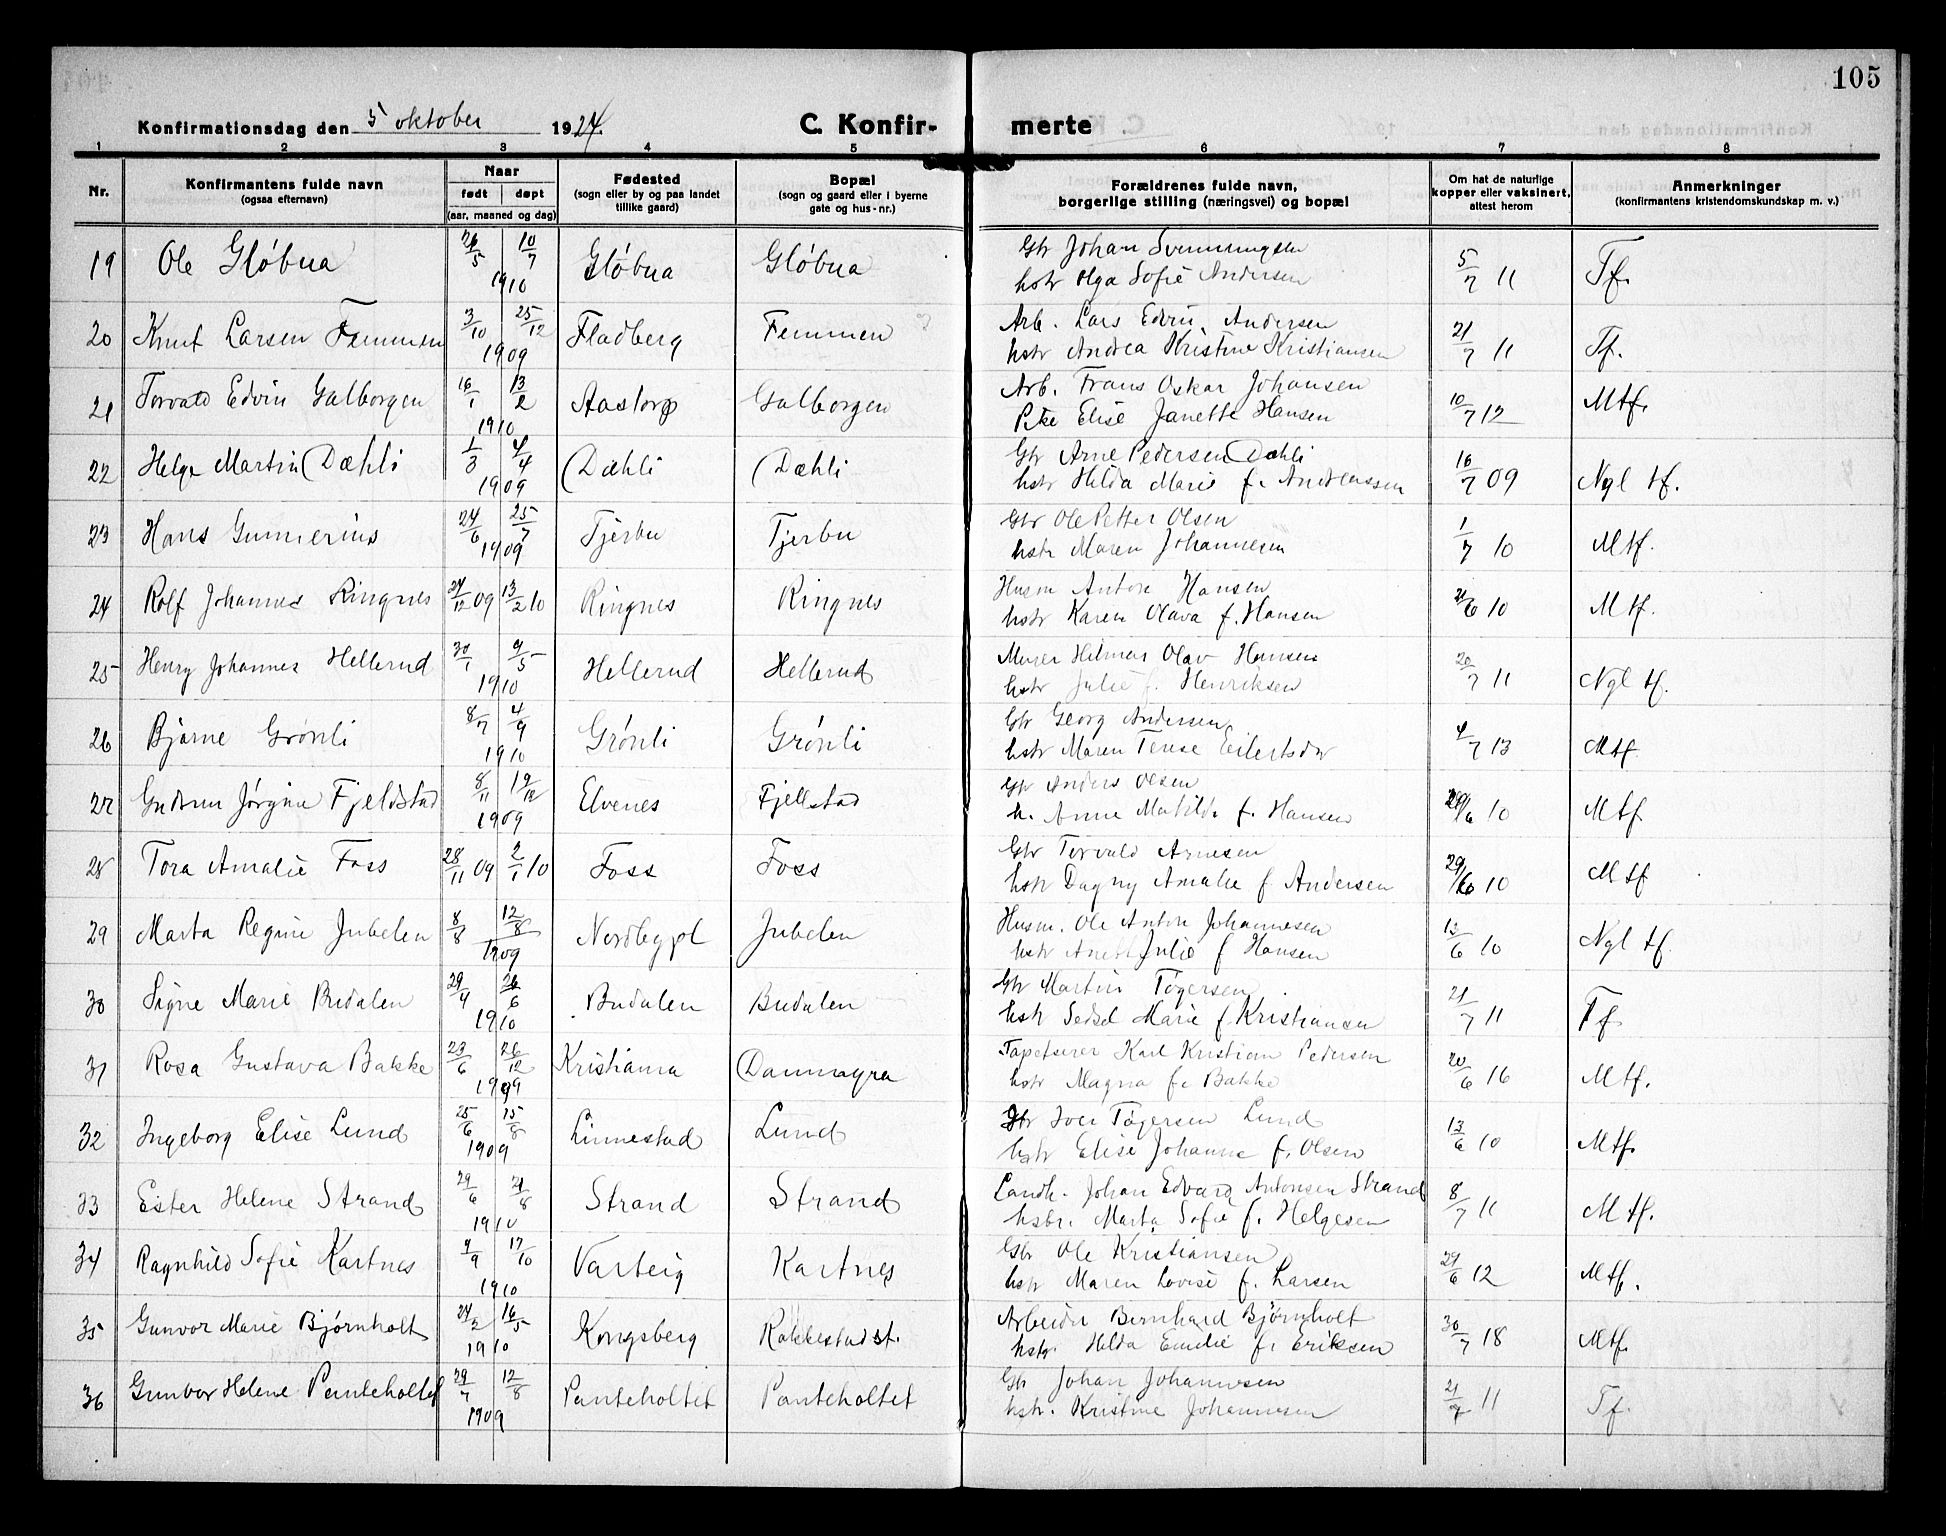 105
Konfirmationsdag den 5 oktober 1924. C. Konfir- merte
1 2 3 4 5 6 7 8
Nr. Konfirmantens fulde navn (ogsaa efternavn) Naar født døpt (aar, maaned og dag) Fødested (sogn eller by og paa landet tillike gaard) Bopæl (sogn og gaard eller i byerne gate og hus-nr.) Forældrenes fulde navn, borgerlige stilling (næringsvei) og bopæl Om hat de naturlige kopper eller vaksinert, attest herom Anmerkninger (konfirmantens kristendomskundskap m. v.)
19 Ole Gløbua 26/5 10/7 1910 Gløbua Gløbua Gbr Johan Svenningsen
hstr Olga Sofie Andersen 5/7 11 Tf.
20 Knut Larsen Femmen 3/10 25/12 1909 Fladberg Femmen Arb. Lars Edvin Andersen
hstr Andrea Kristine Kristiansen 21/7 11 Tf.
21 Torvald Edvin Galborgen 16/1 13/2 1910 Aastorp Galborgen Arb. Frans Oskar Johansen
Pike Elise Janette Hansen 10/7 12 Mtf.
22 Helge Martin Dæhli 1/3 4/4 1909 Dæhli Dæhli Gbr Arne Pedersen Dæhli
hstr Hilda Marie f. Andreassen 16/7 09 Ngl tf.
23 Hans Gunnerius 24/6 25/7 1909 Tjerbu Tjerbu Gbr Ole Petter Olsen
hstr Maren Johannesen 1/7 10 Mtf.
24 Rolf Johannes Ringnes 24/12 09 13/2 10 Ringnes Ringnes Husm Anton Hansen
hstr Karen Olava f. Hansen 21/6 10 Mtf.
25 Henry Johannes Hellerud 30/1 9/5 1910 Hellerud Hellerud Murer Hilmar Olav Hansen
hstr Julie f. Henriksen 20/7 11 Ngl tf.
26 Bjarne Grønli 8/7 4/9 1910 Grønli Grønli Gbr Georg Andersen
hstr Maren Terese Eilertsdtr 4/7 13 Mtf
27 Gudrun Jørgine Fjeldstad 8/11 19/12 1909 Elvenes Fjellstad Gbr Anders Olsen
h. Anne Matilde f. Hansen 29/6 10 Mtf
28 Tora Amalie Foss 28/11 09 2/1 10 Foss Foss Gbr Torvald Arnesen
hstr Dagny Amalie f Andersen 29/6 10 Mtf
29 Marta Regine Jubelen 8/8 12/8 1909 Nordbypl Jubelen Husm. Ole Anton Johannesen
hstr Anette Julie f Hansen 13/6 10 Ngl tf.
30 Signe Marie Budalen 29/4 26/6 1910 Budalen Budalen Gbr Martin Tøgersen
hstr Sedsel Marie f Kristiansen 21/7 11 Tf
31 Rosa Gustava Bakke 23/6 26/12 1909 Kristiania Dammyra Tapetserer Karl Kristian Pedersen
hstr Magna f. Bakke 20/6 16 Mtf.
32 Ingeborg Elise Lund 25/6 15/8 1909 Linnestad Lund Gbr Iver Tøgersen Lund
hstr Elise Johanne f. Olsen 13/6 10 Mtf.
33 Ester Helene Strand 29/6 21/8 1910 Strand Strand Landh. Johan Edvard Antonsen Strand
hstr. Marta Sofie f. Helgesen 8/7 11 Mtf.
34 Ragnhild Sofie Kartnes 9/9 17/10 1910 Varteig Kartnes Gbr Ole Kristiansen
hstr Maren Lovise f. Larsen 29/6 12 Mtf.
35 Gunvor Marie Bjørnholt 24/2 16/5 1910 Kongsberg Rakkestad st. Arbeider Bernhard Bjørnholt
hstr. Hilda Emilie f. Eriksen 30/7 18 Mtf.
36 Gunvor Helene Panteholtet 29/7 12/8 1909 Panteholtet Panteholtet Gbr Johan Johannesen
hstr. Kristine Johannesen 21/7 11 Tf.